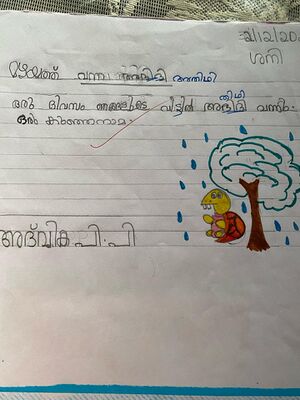 2/12/20
ശനി
മഴയത്ത് വന്ന അതിഥി അതിഥി
ഒരു ദിവസം ഞങ്ങളുടെ വീട്ടിൽ അതിഥി വന്നു.
ഒരു കുഞ്ഞനാമ.
അദ്വിക പി.പി